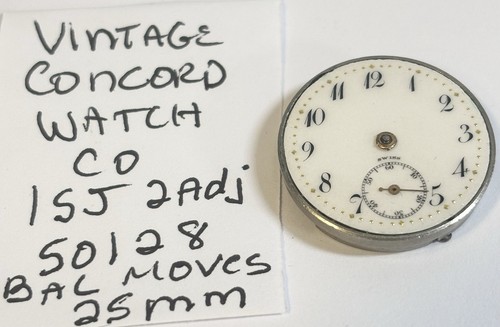 VINTAGE
CONCORD
WATCH
CO
15J 2Adj
50128
BAL MOVES
25mm
12
1
2
3
4
5
7
8
9
10
11
SWISS